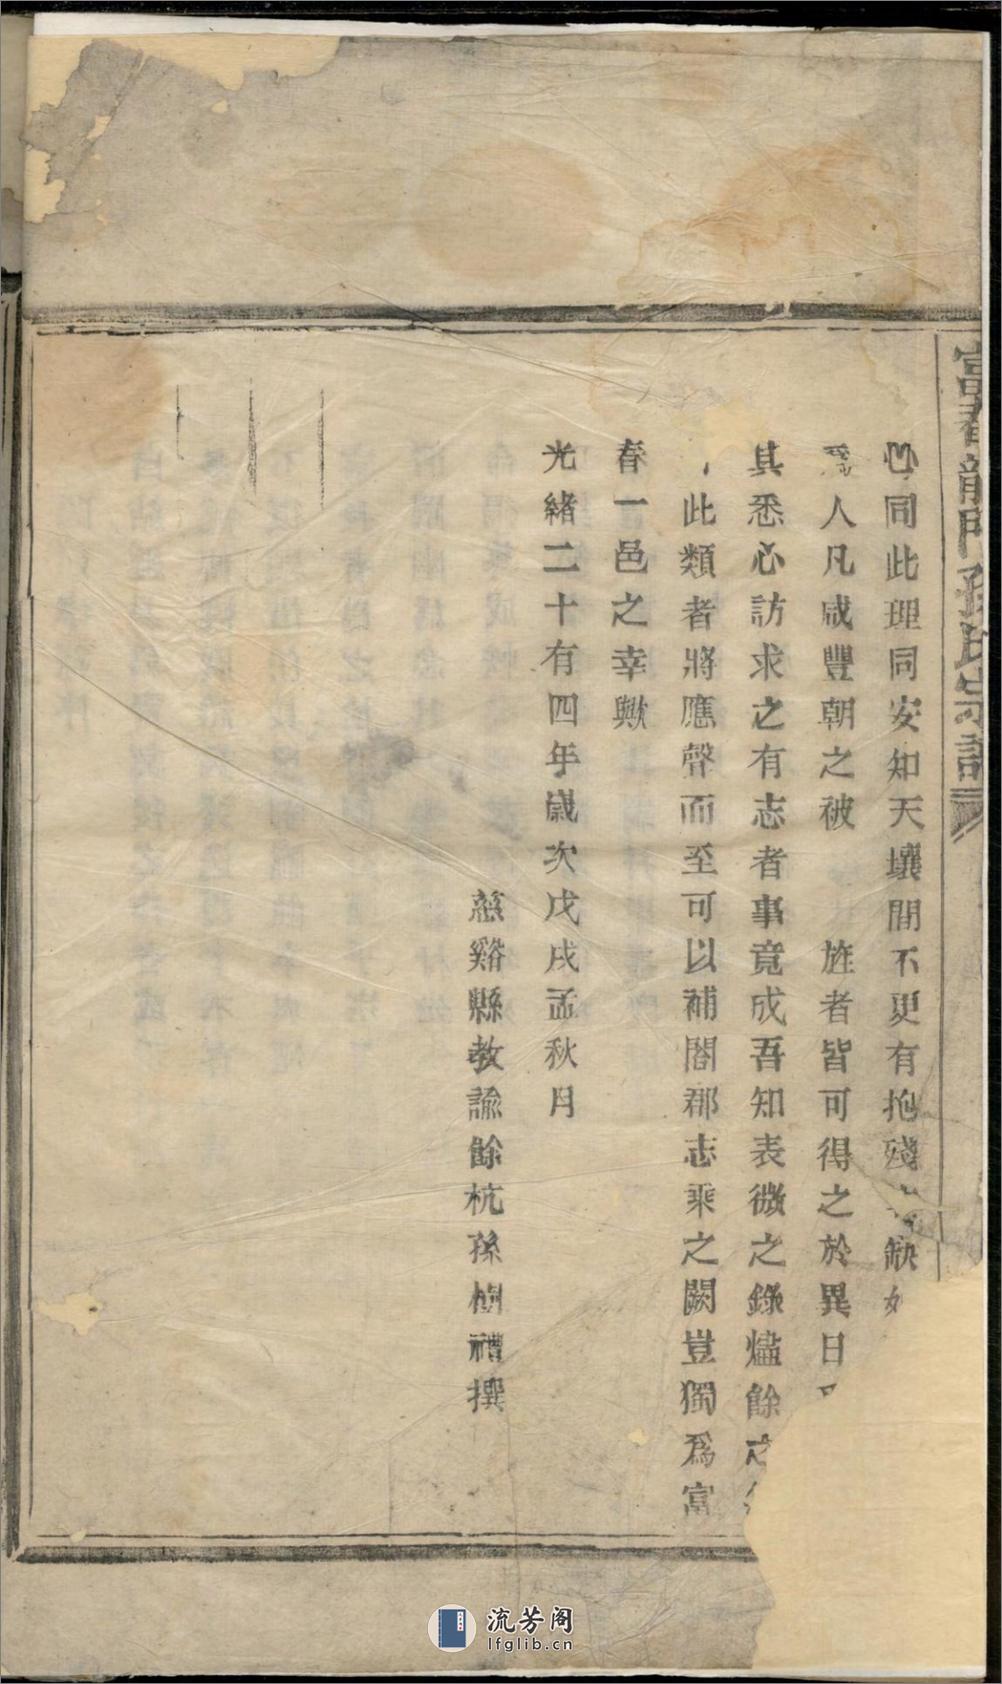 富春龍門孫氏宗譜
心同此理同安知天壤間不更有抱殘守缺如
人凡咸豐朝之被 旌者皆可得之於異日
其悉心訪求之有志者事竟成吾知表微之錄燼餘之
此類者將應聲而至可以補閤郡志乘之闕豈獨爲富
春一邑之幸歟
光緒二十有四年歲次戊戌孟秋月
慈谿縣教諭餘杭孫樹禮撰
流芳阁
lfglib.cn